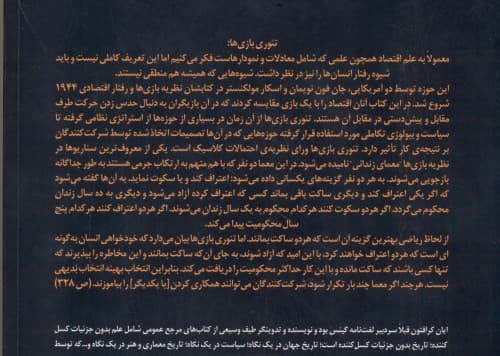 تئوری بازی‌ها:
معمولاً به علم اقتصاد همچون علمی که شامل معادلات و نمودارهاست فکر می‌کنیم اما این تعریف کاملی نیست و باید
شیوه رفتار انسان‌ها را نیز در نظر داشت. شیوه‌هایی که همیشه هم منطقی نیستند.
این حوزه توسط دو امریکایی، جان فون نویمان و اسکار مولگنسترن در کتابشان نظریه بازی‌ها و رفتار اقتصادی ۱۹۴۴
شروع شد. در این کتاب آنان اقتصاد را با یک بازی مقایسه کردند که در آن بازیگران به دنبال حدس زدن حرکت طرف
مقابل و پیش‌دستی در مقابل آن هستند. تئوری بازی‌ها از آن زمان در بسیاری از حوزه‌ها از استراتژی نظامی گرفته تا
سیاست و بیولوژی تکاملی مورد استفاده قرار گرفته حوزه‌هایی که در آن‌ها تصمیمات اتخاذ شده توسط شرکت‌کنندگان
بر نتیجه‌ی کار تأثیر دارد. تئوری بازی‌ها ورای نظریه‌ی احتمالات کلاسیک است. یکی از معروف‌ترین سناریوها در
نظریه بازی‌ها "معمای زندانی" نامیده می‌شود. در این معما دو نفر که با هم متهم به ارتکاب جرمی هستند به طور جداگانه
بازجویی می‌شوند. به هر دو نفر گزینه‌های یکسانی داده می‌شود: اعتراف کند و یا سکوت نماید. به آن‌ها گفته می‌شود
که اگر یکی اعتراف کند و دیگری ساکت باقی بماند کسی که اعتراف کرده آزاد می‌شود و دیگری به ده سال زندان
محکوم می‌گردد. اگر هر دو سکوت کنند هر کدام محکوم به یک سال زندان می‌شوند. اگر هر دو اعتراف کنند هر کدام پنج
سال محکومیت پیدا می‌کند.
از لحاظ ریاضی بهترین گزینه آن است که هر دو ساکت بمانند. اما تئوری بازی‌ها بیان می‌دارد که خودخواهی انسان به‌گونه
ای است که هر دو اعتراف خواهند کرد، با این امید که آزاد شوند، به جای آن که ساکت بمانند و این مخاطره را بپذیرند که
تنها کسی باشند که ساکت مانده و با این کار حداکثر محکومیت را دریافت می‌کند. بنابراین انتخاب بهینه انتخاب بدیهی
نیست. هر چند اگر معما چند بار تکرار شود، شرکت‌کنندگان می‌توانند همکاری کردن [با یکدیگر] را بیاموزند. (ص ۳۲۸)
ایان کرافتون قبلاً سردبیر لغت‌نامه گینس بود و نویسنده و تدوینگر طیف وسیعی از کتاب‌های مرجع عمومی شامل علم بدون جزئیات کسل
کننده، تاریخ بدون جزئیات کسل‌کننده است؛ تاریخ جهان در یک نگاه؛ سیاست در یک نگاه؛ تاریخ معماری و هنر در یک نگاه و...که توسط